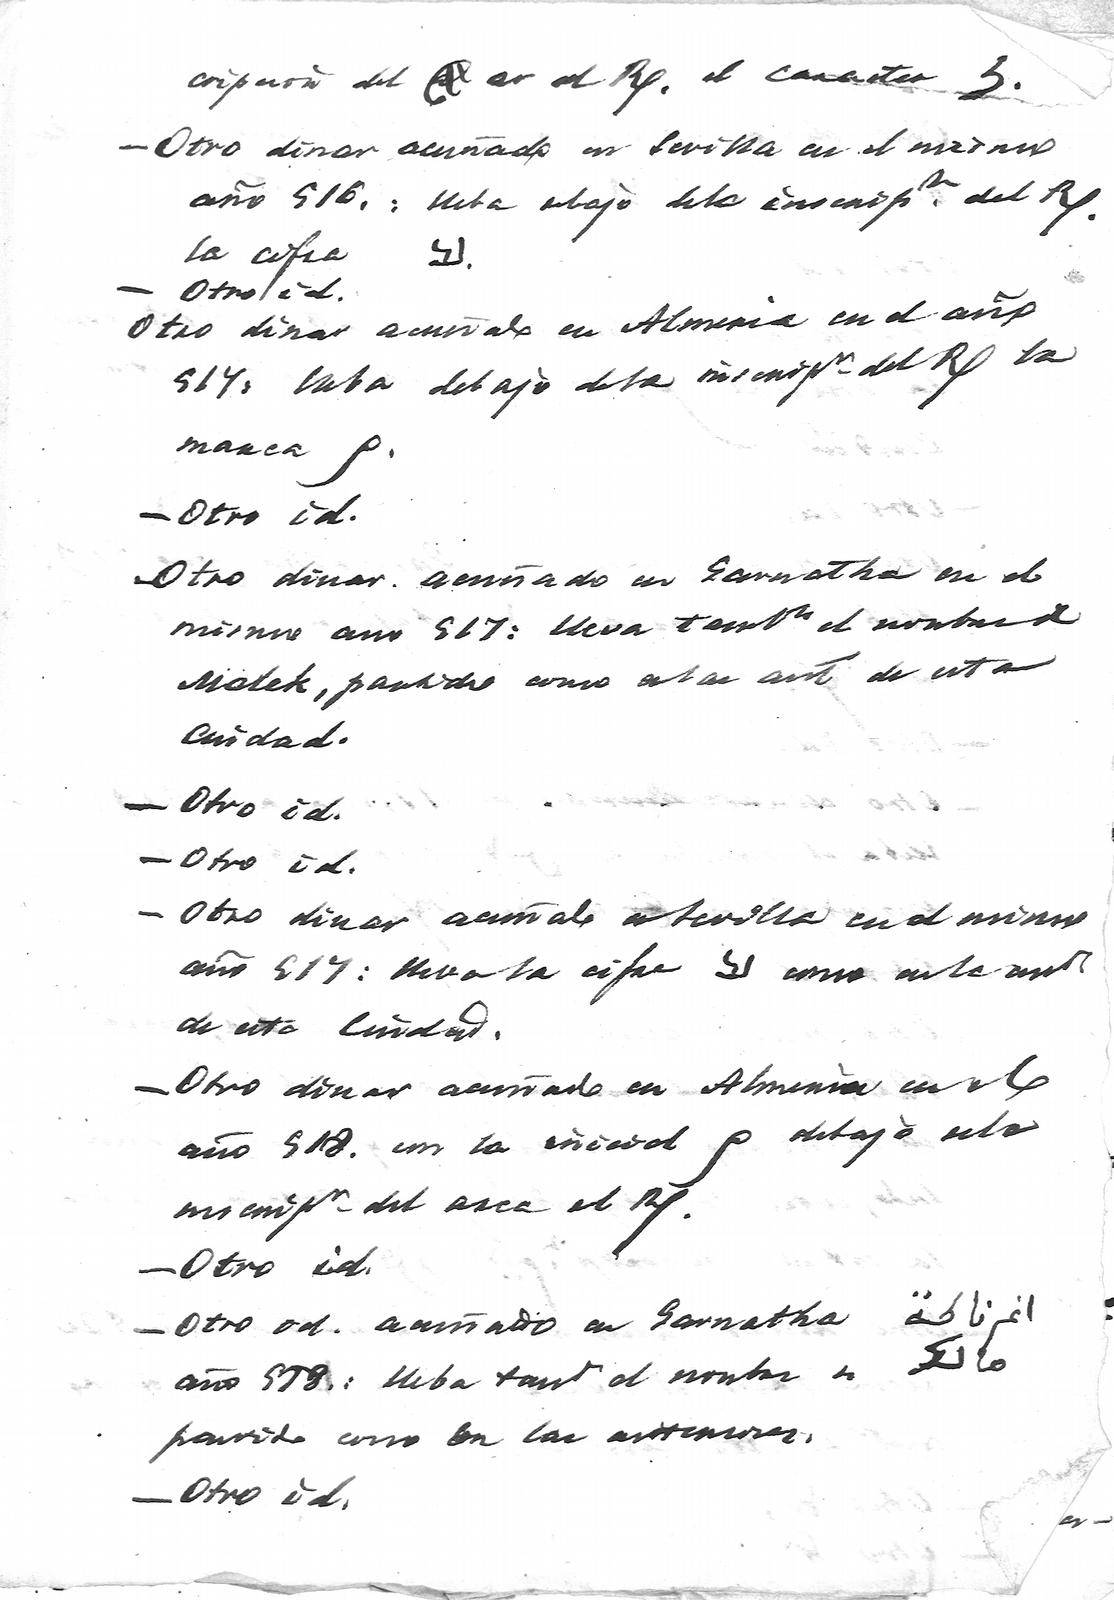 cripcion del ar el Rf. el caracter
— Otro dinar acuñado en Sevilla en el mismo
año 516. : lleba abajo dela inscripn. del Rf.
la cifra
— Otro id.
Otro dinar acuñado en Almeria en el año
517: lleba debajo dela inscripn del Rf la
marca م.
— Otro id.
— Otro dinar. acuñado en Garnatha en el
mismo ano 517: lleva tambn el nombre
Malek, partido como en las ant de esta
Ciudad.
— Otro id.
— Otro id.
— Otro dinar acuñado en Sevilla en el mismo
año 517: lleva la cifra como en la
de esta Ciudad.
— Otro dinar acuñado en Almeria en el
año 518. con la inicial م debajo dela
inscripn del area el Rf.
— Otro id.
— Otro id. acuñado en Garnatha اغرناطة
año 518.: lleba tam el nombre مالك
partido como en las anteriores.
— Otro id.